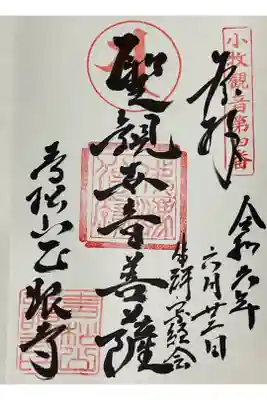 小牧観音第四番
奉拝
令和六年
六月廿二日
聖観世音菩薩
青松山正眼寺